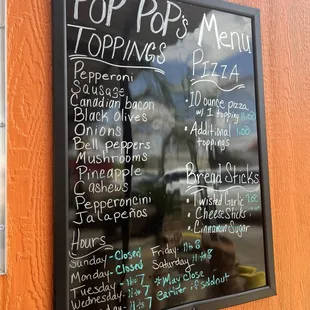 POP POP's Menu
TOPPINGS
Pepperoni
Sausage
Canadian bacon
Black olives
Onions
Bell peppers
Mushrooms
Pineapple
Cashews
Pepperoncini
Jalapeños
Hours
Sunday - Closed
Monday - Closed
Tuesday - 11 to 7
Wednesday - 11 to 7
Friday - 11 to 8
Saturday 11 to 8
*May close
earlier if soldout
PIZZA
• 10 ounce pizza
w/ 1 topping 11.00
• Additional 1.00
toppings
Bread Sticks
• Twisted Garlic
• Cheese Sticks
• Cinnamon Sugar